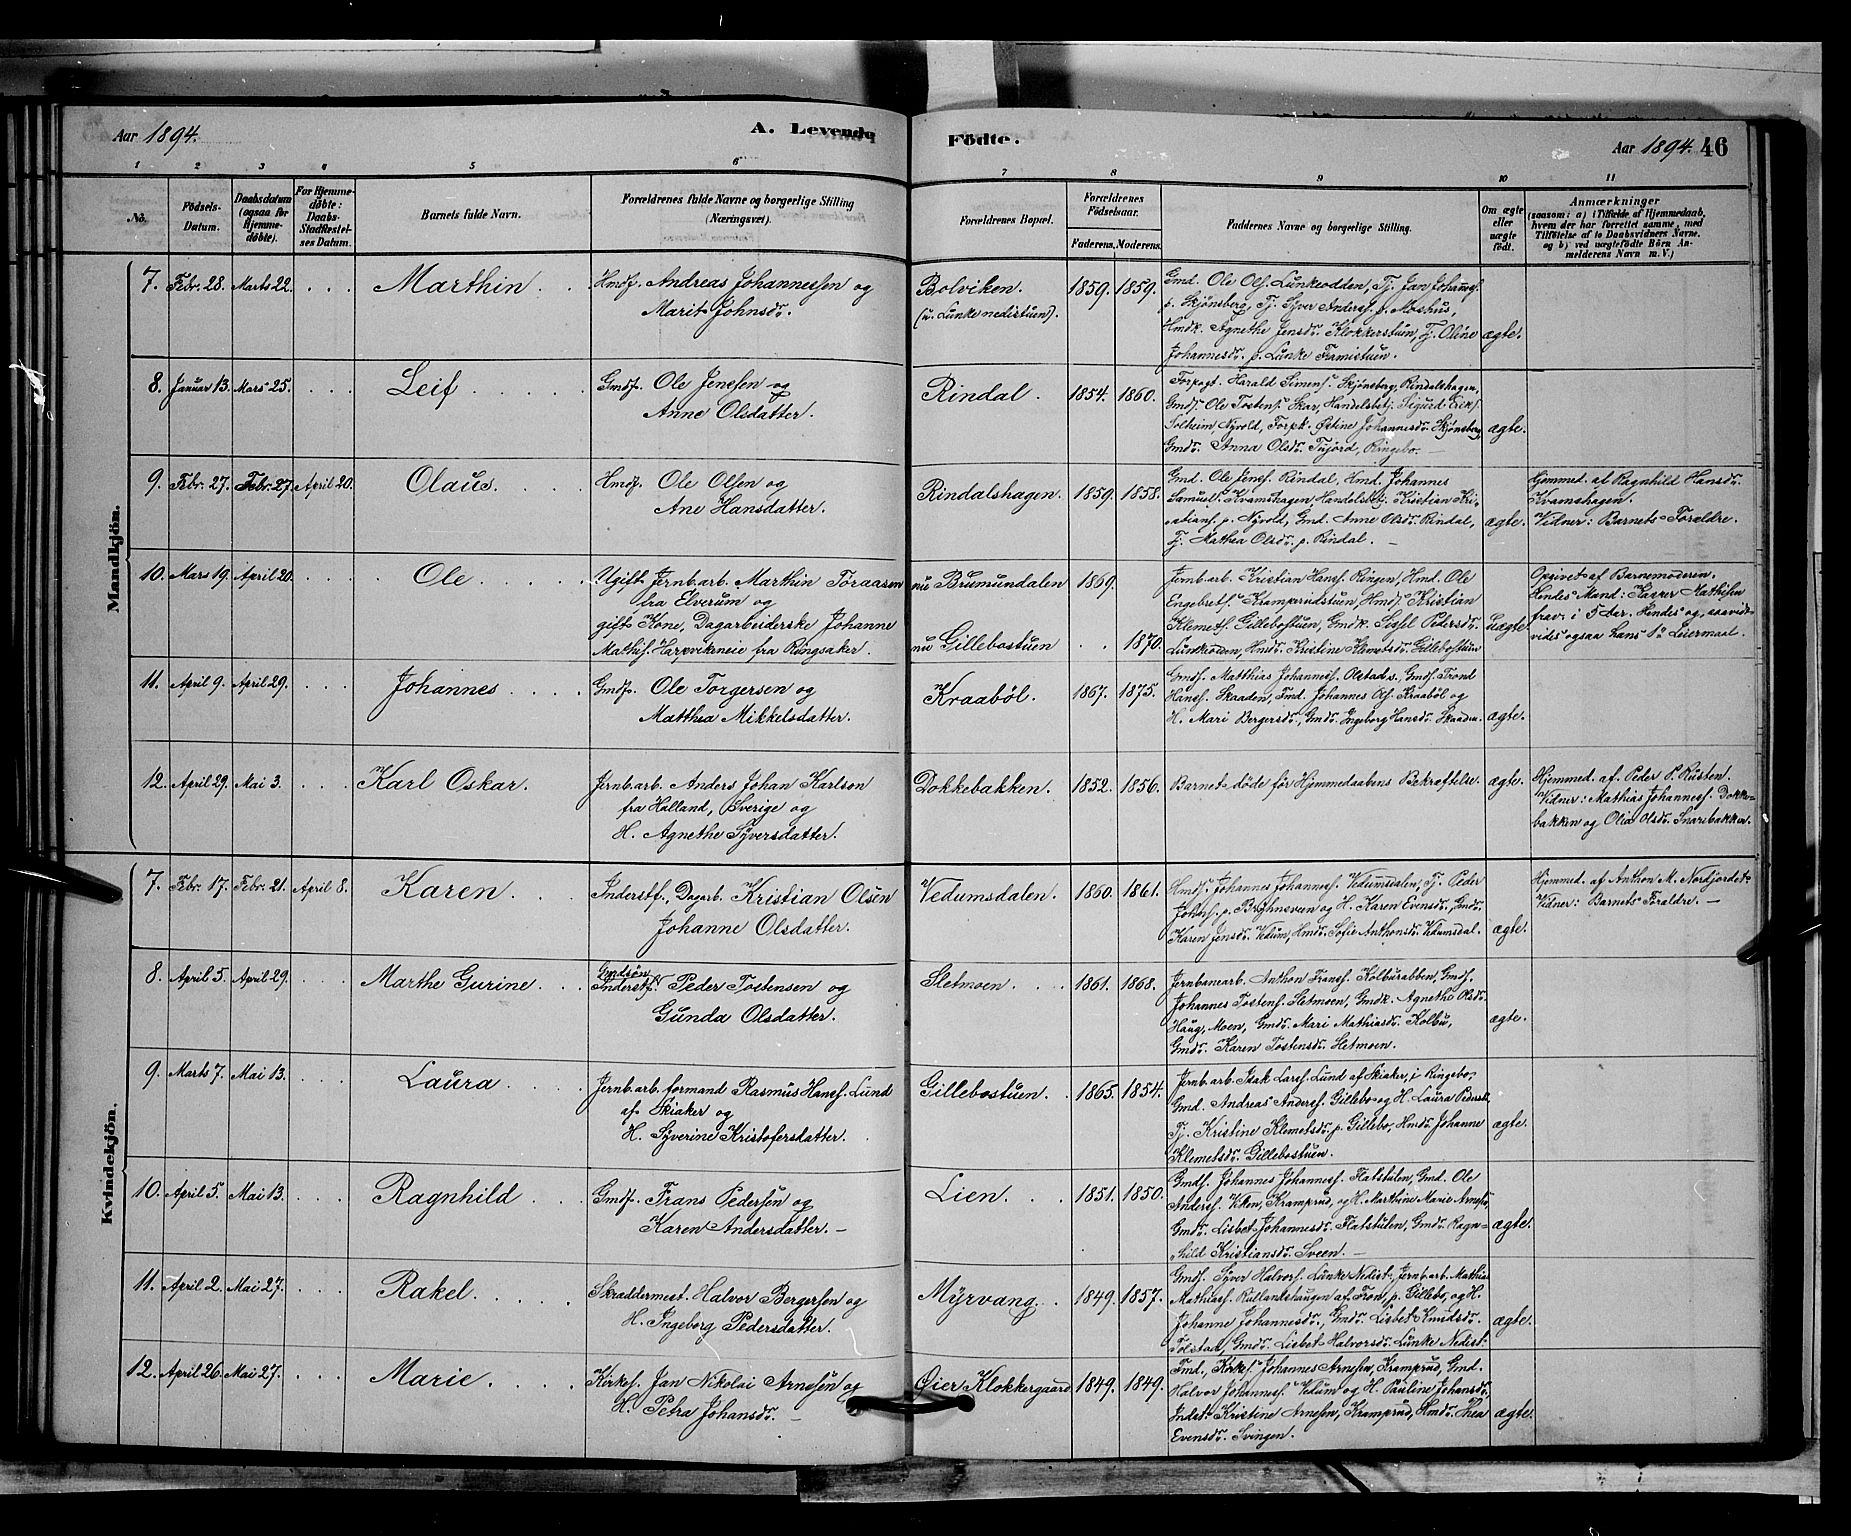 Aar 1894.
A. Levende
Födte.
Aar 1894. 46
1 2 3 4 5 6 7 8 9 10 11
No.
Födsels-Datum.
Daabsdatum (ogsaa for Hjemme-döbte).
For Hjemme-döbte: Daabs-Stadfæstel-ses Datum.
Barnets fulde Navn.
Forældrenes fulde Navne og borgerlige Stilling (Næringsvei).
Forældrenes Bopæl.
Forældrenes Födselsaar.
Faderens. Moderens.
Faddernes Navne og borgerlige Stilling.
Om ægte eller uægte födt.
Anmærkninger
(saasom: a) i Tilfælde af Hjemmedaab, hvem der har forrettet samme, med Tilföielse af to Daabsvidners Navne, og b) ved uægtefödte Börn An-melderens Navn m. V.)
Mandkjön.
7. Febr. 28. Marts 22. Marthin.
Hmdf. Andreas Johannessen og
Marit Johnsdr.
Bolviken.
(u. Lunke nedistuen).
1859. 1859.
Gmd. Ole Ols. Lunkeodden, Tj. Jan Johannes.
p. Skjönsberg, Tj. Syver Anders. p. Moshus,
Hmdk. Agnethe Jensdr. Klokkerstuen, Tj. Oline
Johannesdr. p. Lunke Framistuen.
ægte.
8. Januar 13. Mars 25. Leif
Gmdf. Ole Jensen og
Anne Olsdatter.
Rindal. 1854. 1860.
Forpagt. Harald Simens. Skjönsberg, Rindalshagen,
Gmds. Ole Tostens. Skar, Handelsbetj. Sigurd Eriks.
Solheim, Nyvold, Forpk. Östine Johannesdr. Skjönsberg,
Gmdr. Anna Olsdr. Tujord, Ringebo.
ægte.
9. Febr. 27. Febr. 27. April 20. Olaus.
Hmdf. Ole Olsen og
Ane Hansdatter.
Rindalshagen. 1859. 1858.
Gmd. Ole Jens. Rindal, Hmd. Johannes
Samuels. Kvamshagen, Handelsbet. Kristian Kri-
stians. p. Nyvold, Gmd. Anne Olsdr. Rindal,
Tj. Mathea Olsdr. p. Rindal.
ægte.
Hjemmed. af Ragnhild Hansdr.
Kvamshagen.
Vidner: Barnets Forældre.
10. Mars 19. April 20. Ole
Ugift Jernb.arb. Marthin Toraasen
fra Elverum og
gift Kone, Dagarbeiderske Johanne
Mathis. Harpvikeneie fra Ringsaker.
nu Brumundalen 1869.
nu Gillebostuen 1870.
Jernb.arb. Kristian Hans. Ringen, Hmd. Ole
Engebrets. Kramprudstuen, Hmds. Kristian
Klemets. Gillebostuen, Gmdk. Sigfl Pedersdr.
Lunkeodden, Hmdr. Kristine Klemetsdr. Gillebostuen
uægte
Opgivet af Barnemoderen.
Hendes Mand: Kasper Mathisen
frav. i 5 Aar. Hendes og, saavidt
vides ogsaa hans 1ste Leiermaal.
11. April 9. April 29. Johannes
Gmdf. Ole Torgersen og
Matthea Mikkelsdatter.
Kraaböl. 1867. 1875.
Gmds. Matthias Johannes. Olstad s., Gmds. Trond
Hans. Skaaden, Fmd. Johannes Ols. Kraaböl og
H. Mari Bergersdr., Gmdr. Ingeborg Hansdr. Skaaden.
ægte.
12. April 29. Mai 3. Karl Oskar.
Jernb.arb. Anders Johan Karlson
fra Halland, Sverige og
H. Agnethe Syversdatter.
Dokkebakken. 1852. 1856.
Barnet döde för Hjemmedaabens Bekræftelse. ægte.
Hjemmed. af Peder P. Risten.
Vidner: Mathias Johannes. Dokke-
bakken og Olia Olsdr. Snarebakken.
Kvindekjön.
7. Febr. 17. Febr. 21. April 8. Karen
Inderstf., Dagarb. Kristian Olsen
Johanne Olsdatter.
Vedumsdalen. 1860. 1861.
Hmds. Johannes Johannes. Vedumsdalen, Tj. Peder
Johans. p. Bryhnsveen og H. Karen Evensdr., Gmdr.
Karen Jensdr. Vedum, Hmdr. Sofie Anthonsdr. Vedumsdal.
ægte.
Hjemmed. af Anthon M. Nordjordet.
Vidner: Barnets Forældre.
8. April 5. April 29. Marthe Gurine
Gmdsön
Inderstf. Peder Tostensen og
Gunda Olsdatter.
Sletmoen. 1861. 1868.
Jernbanearb. Anthon Frans. Kolburabben, Gmds.
Johannes Tostens. Sletmoen, Gmdk. Agnethe Olsdr.
Haug, Moen, Gmdr. Mari Mathiasdr. Kolbu,
Gmdr. Karen Tostensdr. Sletmoen.
ægte.
9. Marts 7. Mai 13. Laura
Jernb.arb. formand Rasmus Hans. Lund
af Skiaker og
H. Syverine Kristofersdatter.
Gillebostuen. 1865. 1854.
Jernb.arb. Isak Lars. Lund af Skiaker, i Ringebo,
Gmd. Andreas Anders. Gillebo og H. Laura Pedersd.
Tj. Kristine Klemetsdr. p. Gillebo, Hmdr. Johanne
Klemetsdr. Gillebostuen.
ægte.
10. April 5. Mai 13. Ragnhild
Gmdf. Frans Pedersen og
Karen Andersdatter.
Lien. 1851. 1850.
Gmds. Johannes Johannes. Flatstulen, Gmd. Ole
Anders. Viken, Kramprud, og H. Marthine Marie Arnesdr.
Gmdr. Lisbet Johannesdr. Flatstulen, Gmdr. Ragn-
hild Kristiansdr. Sveen.
ægte.
11. April 2. Mai 27. Rakel
Skræddermest. Halvor Bergersen og
H. Ingeborg Pedersdatter.
Myrvang. 1849. 1857.
Gmds. Syver Halvors. Lunke Nedist., Jernb.arb. Mathias
Mathias. Rullandshaugen af Fron, p. Gillebo, og H.
Johanne Johannesdr., Gmdr. Lisbet Knudsdr.
Tolstad, Gmdr. Lisbet Halvorsdr. Lunke Nedist.
ægte.
12. April 26. Mai 27. Marie
Kirkes. Jan Nikolai Arnesen og
H. Petra Johansdr.
Öier Klokkergaard 1849. 1849.
Fmd., Kirkes. Johannes Arnesen, Kramprud, Gmd.
Halvor Johannes. Vedum og H. Pauline Johansdr.,
Indst. Kristine Arnesen, Kramprud, Hmdr. Thea
Evensdr. Svingen.
ægte.